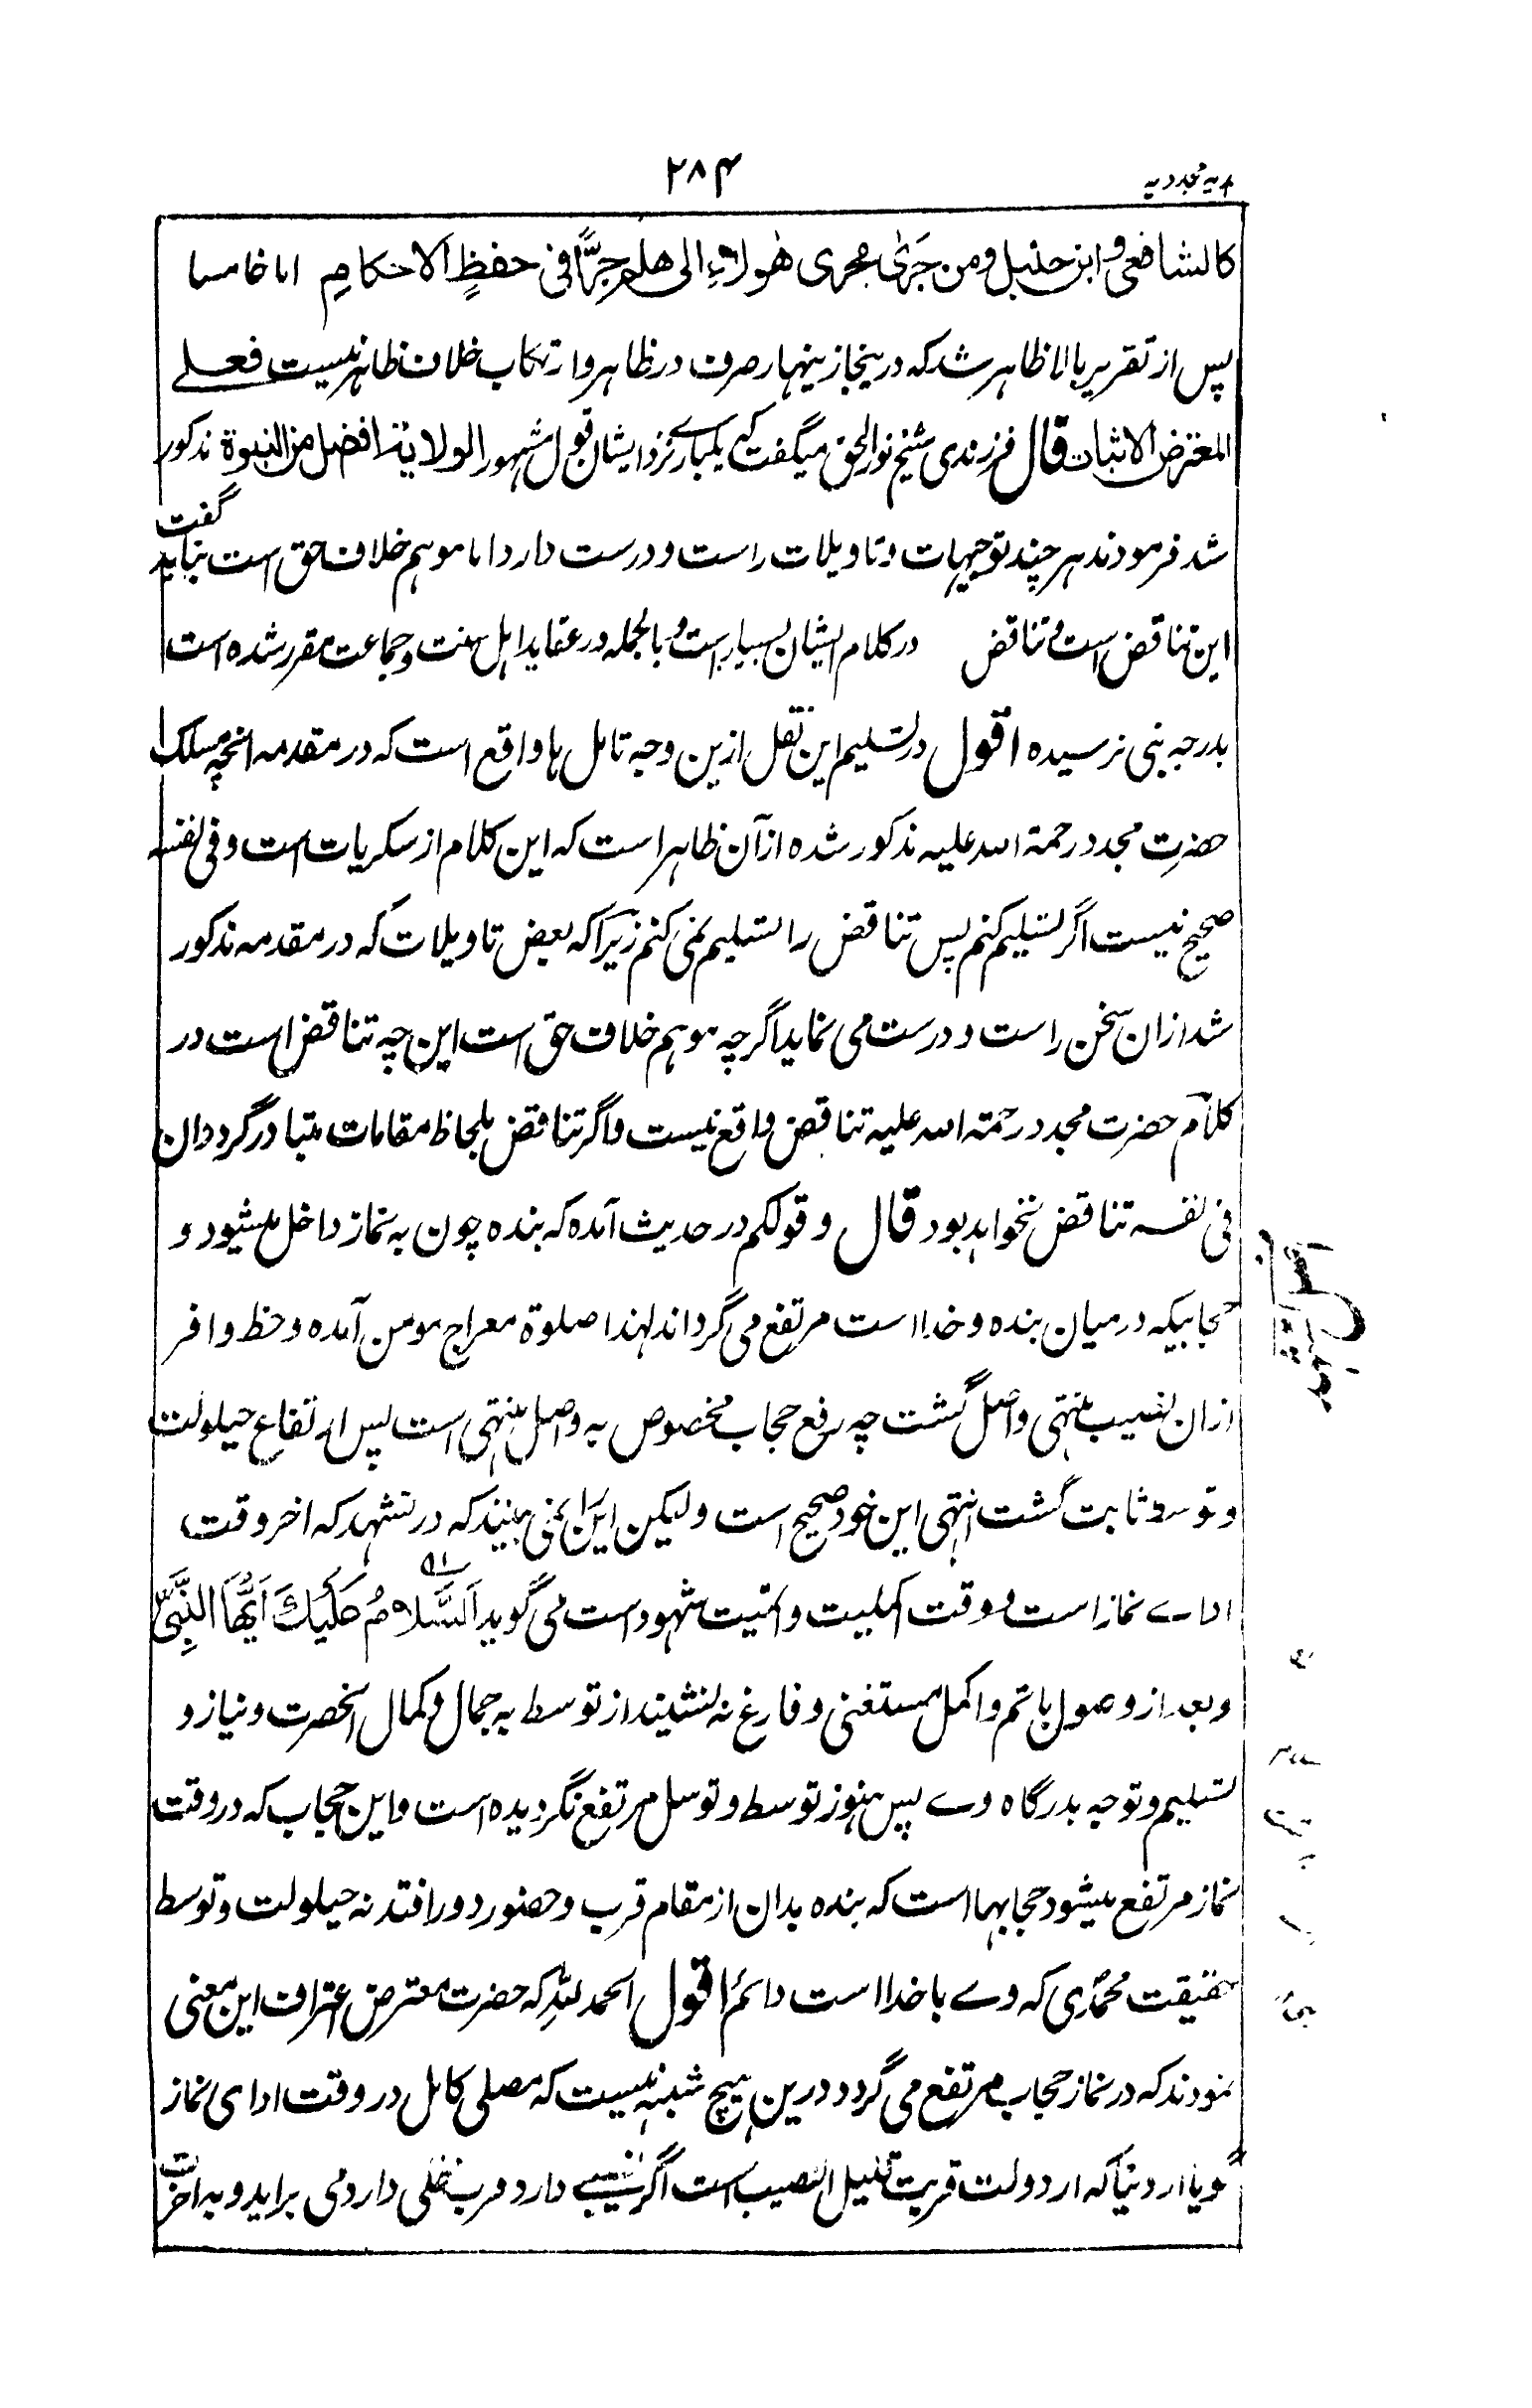 ۲۸۴
یہ مجددیہ
کالشافعی و ابن حنبل ومن جَریٰ مجری هٰولاءِ الی هلم جرًّا فی حفظِ الاحکامِ اما خامسا
پس از تقریر بالا ظاهر شد که درینجا زینهار صرف در ظاهر و ارتکاب خلاف ظاهر نیست فعلے
المعترض الاثبات قال فرزندی شیخ نور الحق میگفت که یکبارے نزد ایشان قول مشهور الولایة افضل من النبوة مذکور
شد فرمودند هر چند توجیهات و تاویلات راست و درست دارد اما موهم خلاف حق است نباید گفت
این تناقض است و تناقض در کلام ایشان بسیار است و بالجمله در عقاید اهل سنت و جماعت مقرر شده است
بدرجه نبی نرسیده اقول در تسلیم این نقل ازین وجه تامل ها واقع است که در مقدمه انچه مسلک
حضرت مجدد رحمة الله علیه مذکور شده از آن ظاهر است که این کلام از سکریات است و فی نفسه
صحیح نیست اگر تسلیم کنم پس تناقض را تسلیم نمی کنم زیرا که بعض تاویلات که در مقدمه مذکور
شد ازان سخن راست و درست می نماید اگرچه موهم خلاف حق است این چه تناقض است در
کلام حضرت مجدد رحمته الله علیه تناقض واقع نیست و اگر تناقض بلحاظ مقامات متبادر گردد ان
فی نفسه تناقض نخواهد بود قال و قولکم در حدیث آمده که بنده چون به نماز داخل میشود و
حجابیکه درمیان بنده و خدا است مرتفع می گرداند لهذا صلوة معراج مومن آمده و حظ وافر
ازان نصیب منتهی واصل گشت چه رفع حجاب مخصوص به واصل منتهی است پس ارتفاع حیلولت
و توسط ثابت گشت انتهی این خود صحیح است و لیکن این را نمی بینند که در تشهد که اخر وقت
اداے نماز است و وقت اکملیت و اتمیت شهود است می گوید اَلسَّلامُ عَلَیكَ اَیُّهَا النَّبِیُّ
و بعد از وصول باتم و اکمل مستغنی و فارغ نه نشیند از توسط به جمال و کمال آنحضرت و نیاز و
تسلیم و توجه بدرگاه وے پس هنوز توسط و توسل مرتفع نگردیده است و این حجاب که در وقت
نماز مرتفع میشود حجابها است که بنده بدان از مقام قرب و حضور دور افتد نه حیلولت و توسط
حقیقت محمدی که وے با خدا است دائم اقول الحمد للهِ که حضرت معترض اعتراف این معنی
نمودند که در نماز حجاب مرتفع می گردد درین هیچ شبه نیست که مصلی کامل در وقت ادای نماز
گویا از دنیا که از دولت قربت قلیل النصیب است اگر نصیبے دارد قرب ظلی دارد می براید و به اخرت